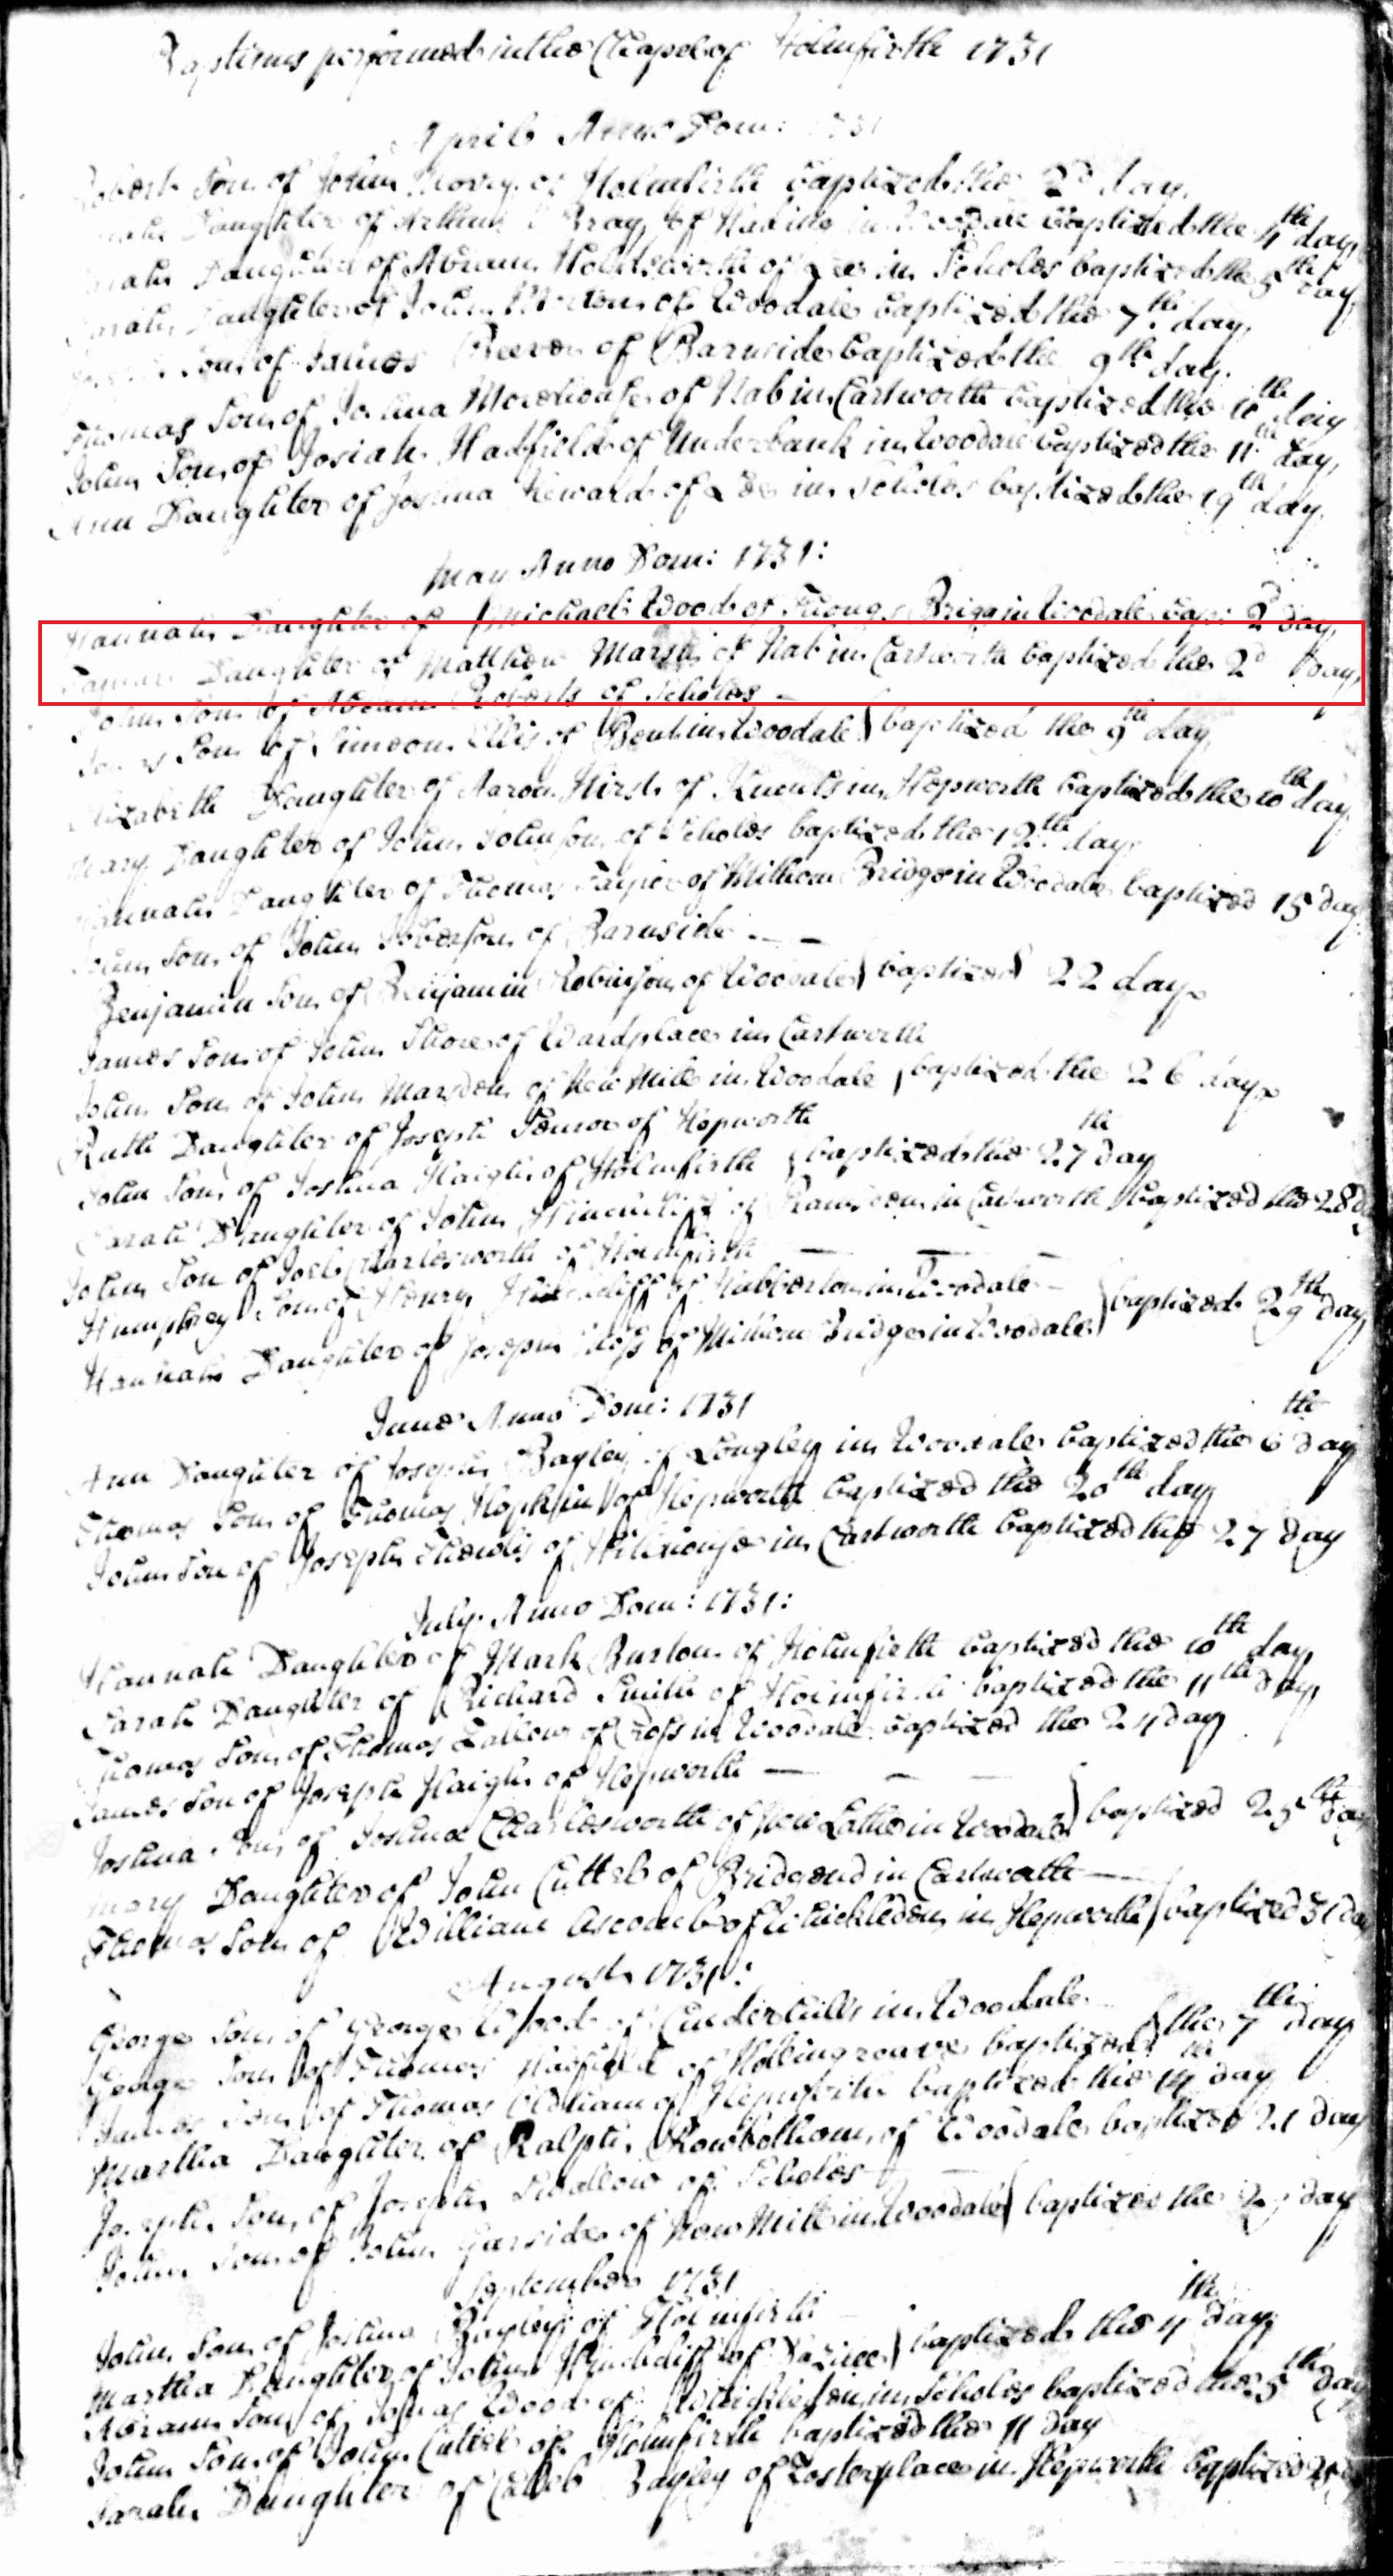 Baptisms performed in the Chapel of Holmfirth 1731
April Anno Dom: 1731
Son of John of Holmfirth baptized the 2d day,
Daughter of Arthur Bray of in Woodale baptized the 4th day,
Daughter of Abram Holdsworth of Lee in Scholes baptized the 5th day
Sarah Daughter of John of Woodale baptized the 7th day,
Son of James Reeves of Barnside baptized the 9th day.
Thomas Son of Joshua Morehouse of Nab in Cartworth baptized the 10th day
John Son of Josiah Hadfield of Underbank in Woodale baptized the 11th day,
Ann Daughter of Joshua Heward of Lee in Scholes baptized the 19th day.
May Anno Dom: 1731:
Hannah Daughter of Michael Wood of Thongs Brigg in Woodale bap: 2d day,
Daughter of Matthew Marsh of Nab in Cartworth baptized the 2d Day,
John Son of Abram Roberts of Scholes
Son of Simeon Ellis of Bent in Woodale } baptized the 9th day
Elizabeth Daughter of Aaron Hirst of in Hepworth baptized the 10th day
Mary Daughter of John Johnson of Scholes baptized the 12th day
Hannah Daughter of Thomas Taylor of Bridge in Woodale baptized 15 day
Son of John of Barnside
Benjamin Son of Benjamin Robinson of Woodale } baptized 22 day
James Son of John Shore of Wardplace in Cartworth
John Son of John Marsden of New Mill in Woodale } baptized the 26 day
Ruth Daughter of Joseph of Hepworth
John Son of Joshua Haigh of Holmfirth } baptized the 27th day
Sarah Daughter of John of in Cartworth baptized the 28 d
John Son of Joel Charlesworth of Holmfirth
Humphrey Son of Henry of in Woodale
Hannah Daughter of Joseph of Bridge in Woodale } baptized 29th day
June Anno Dom: 1731
Ann Daughter of Joseph Bayley of Longley in Woodale baptized the 6th day
Thomas Son of Thomas of Hepworth baptized the 20th day
John Son of Joseph Thewlis of Hillhouse in Cartworth baptized the 27 day
July Anno Dom: 1731:
Hannah Daughter of Mark Burton of Holmfirth baptized the 10th day
Sarah Daughter of Richard Smith of Holmfirth baptized the 11th day
Thomas Son of Thomas of Cross in Woodale baptized the 24 day
James Son of Joseph Haigh of Hepworth
Joshua Son of Joshua Charlesworth of New Lathe in Woodale } baptized 25th day
Mary Daughter of John Cuttel of Bridgend in Cartworth
Thomas Son of William of in Hepworth } baptized 31 day
August 1731:
George Son of George Wood of in Woodale
George Son of Thomas Hadfield of Hollingreave baptized } the 7th day
James Son of Thomas Oldham of Hepworth baptized the 14th day
Martha Daughter of Ralph Rowbothom of Woodale baptized 21 day
Joseph Son of Joseph Swallow of Scholes
John Son of John Garside of New Mill in Woodale } baptized the day
September 1731
John Son of Joshua Bayley of Holmfirth
Martha Daughter of John of } baptized the 4th day
Abram Son of Wood of in Scholes baptized the 5th day
John Son of John Cuttel of Holmfirth baptized the 11 day
Sarah Daughter of Caleb Bayley of Fosterplace in Hepworth baptized